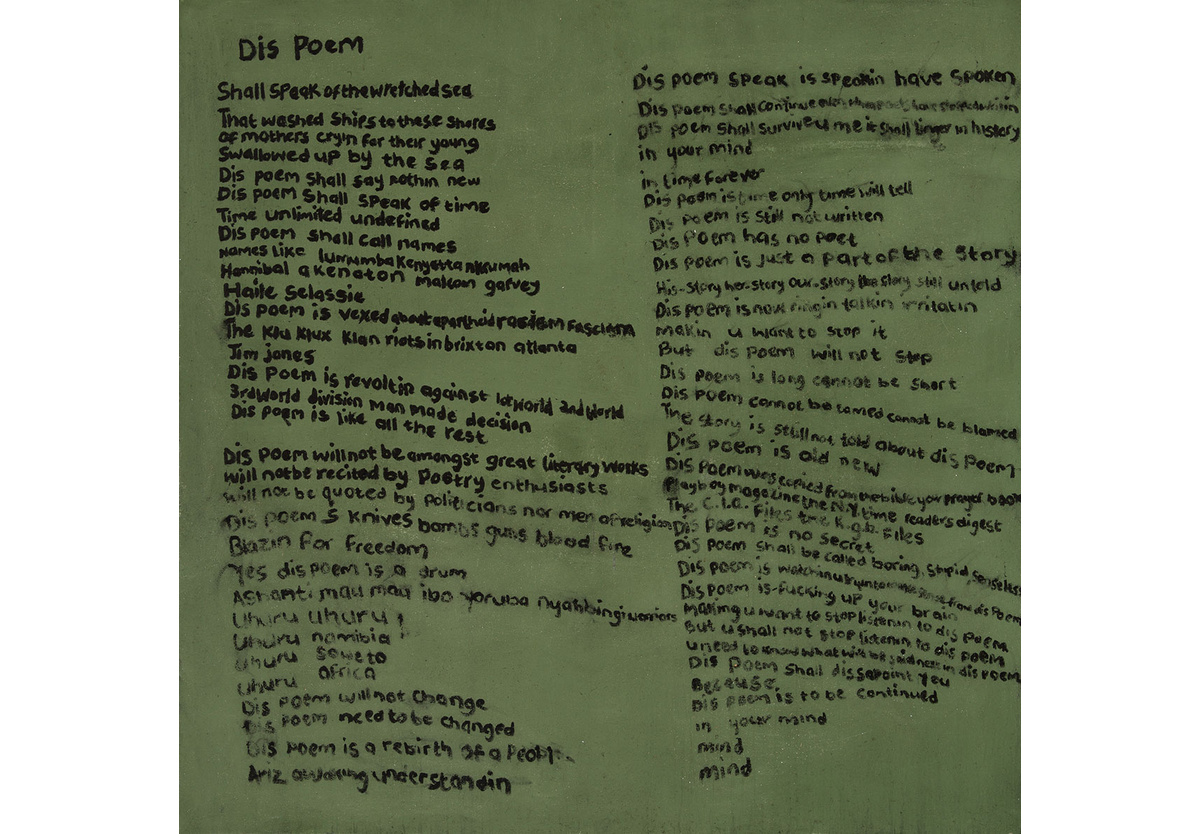 Dis Poem
Shall Speak of the wretched sea
That washed ships to these shores
of mothers cryin for their young
swallowed up by the sea
Dis poem shall say nothin new
Dis poem shall speak of time
Time unlimited undefined
Dis poem shall call names
names like lumumba kenyatta nkrumah
Hannibal akenaton malcom garvey
Haile selassie
Dis poem is vexed about apartheid racism fascism
The klu klux klan riots in brixton atlanta
Jim jones
Dis poem is revoltin against 1st world 2nd world
3rd world division man made decision
Dis poem is like all the rest
Dis poem will not be amongst great literary works
will not be recited by poetry enthusiasts
will not be quoted by politicians nor men of religion
Dis poem s knives bombs guns blood fire
Blazin for freedom
Yes dis poem is a drum
Ashanti mau mau ibo yoruba nyahbingi warriors
Uhuru uhuru
Uhuru namibia
uhuru soweto
uhuru africa
Dis poem will not change
Dis poem need to be changed
Dis poem is a rebirth of a
understandin
Dis poem speak is speakin have spoken
Dis poem shall continue even have stopped writin
Dis poem shall survive u me it shall linger in history
in your mind
in time forever
Dis poem is time only time will tell
Dis poem is still not written
Dis poem has no poet
Dis poem is just a part of the story
His-story her-story our-story the story still untold
Dis poem is now ringin talkin irritatin
makin u want to stop it
But dis poem will not stop
Dis poem is long cannot be short
Dis poem cannot be tamed cannot be blamed
The story is still not told about dis poem
Dis poem is old new
Dis poem was copied from the bible your prayer book
Playboy magazine the N.Y. time readers digest
The C.I.A. files the K.g.b. files
Dis poem is no secret
Dis poem shall be called boring, stupid senseless
Dis poem is watchin u tryin to make sense from dis poem
Dis poem is fucking up your brain
making u want to stop listenin to dis poem
But u shall not stop listenin to dis poem
u need to know what will be said next in dis poem
Dis poem shall dissapoint you
Because
Dis poem is to be continued
in your mind
mind
mind